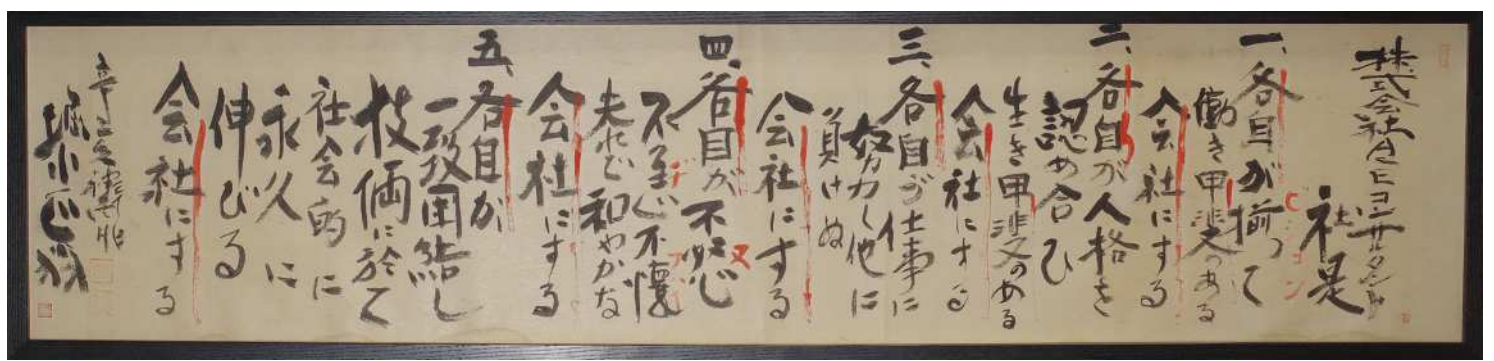 株式会社
社是
ビジョン
一、各自が揃って
働き甲斐のある
会社にする
二、各自が人格を
認め合ひ
生き甲斐のある
会社にする
三、各自が仕事に
努力し他に
負けぬ
会社にする
四、各自が不怒
和やかな
会社にする
五、各自が
一致団結し
技倆に於て
社会的に
永久に
伸びる
会社にする